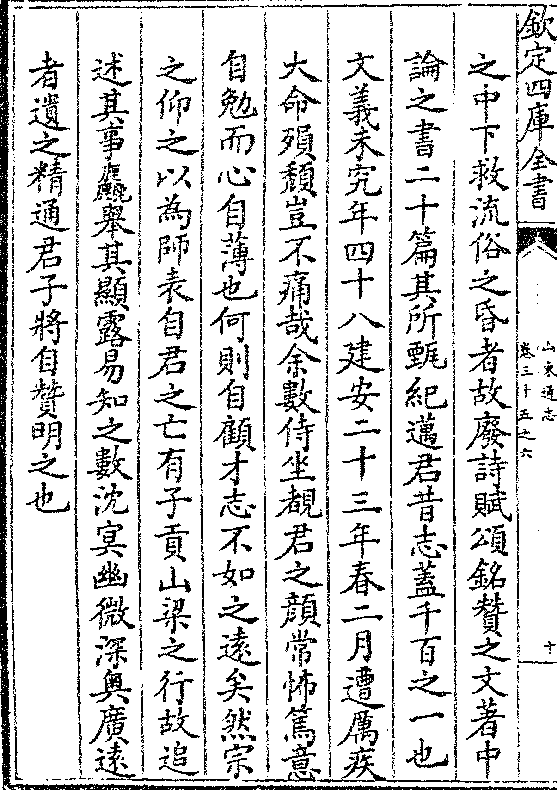 欽定四庫全書
山東通志
卷三十五之六
十
之中下救流俗之昏者故廢詩賦頌銘贊之文著中
論之書二十篇其所甄紀邁君昔志蓋千百之一也
文義未究年四十八建安二十三年春二月遭厲疾
大命殞頽豈不痛哉余數侍坐覩君之顔常怖篤意
自勉而心自薄也何則自顧才志不如之逺矣然宗
之仰之以為師表自君之亡有子貢山梁之行故追
述其事麤舉其顯露易知之數沈㝠幽微深奥廣逺
者遺之精通君子將自贊明之也